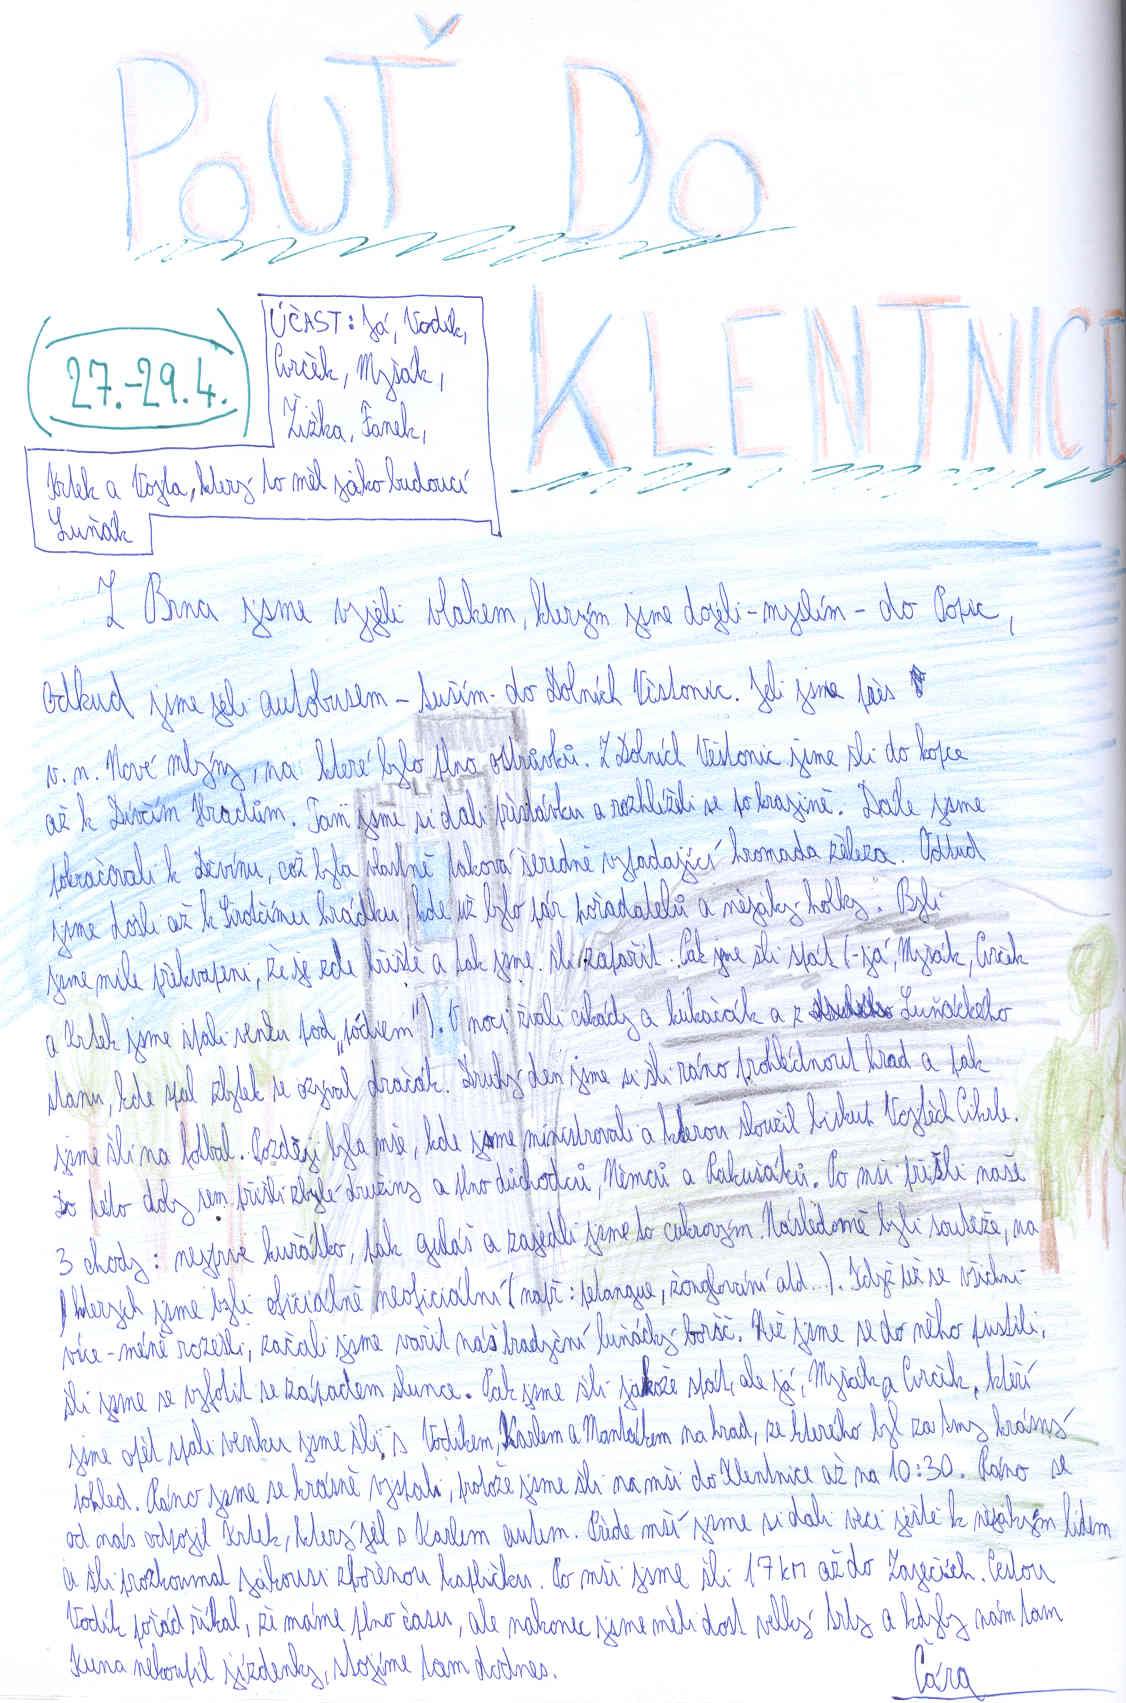 POUŤ DO
KLENTNICE
27.-29.4.
ÚČAST: Já, Vodík,
Cvrček, Myšák,
Žižka, Fanek,
Krtek a Vojta, který to měl jako budoucí
Luňák
Z Brna jsme vyjeli vlakem, kterým jsme dojeli - myslím - do Popic,
odkud jsme jeli autobusem - tuším - do Dolních Věstonic. Jeli jsme přes
v. n. Nové mlýny, na které bylo plno ostrůvků. Z Dolních Věstonic jsme šli do kopce
až k Dívčím Hradům. Tam jsme si dali přestávku a rozhlíželi se po krajině. Dále jsme
pokračovali k Děvínu, což byla vlastně taková šeredně vypadající hromada železa. Odtud
jsme došli až k Sirotčímu hrádku, kde už bylo pár pořadatelů a nějaký holky. Byli
jsme mile překvapeni, že je zde hřiště a tak jsme šli zapařit. Pak jsme šli spát (-já, Myšák, Cvrček
a Krtek jsme spali venku pod „ "). V noci řvali cikády a kukaččák a z Luňáckého
stanu, kde spal zbytek se ozýval dračák. Druhý den jsme si šli ráno prohlédnout hrad a pak
jsme šli na fotbal. Později byla mše, kde jsme ministrovali a kterou sloužil biskup Vojtěch Cikrle.
Do této doby sem přišli zbylé družiny a plno důchodců, Němců a Rakušáků. Po mši přišli naše
3 chody: nejprve kuřátko, pak guláš a zajedli jsme to cukrovým. Následovně byli soutěže, na
kterých jsme byli oficiálně neoficiální (např: petangue, žonglování atd...). Když už se všichni
více-méně rozešli, začali jsme vařit náš tradiční luňácký boršč. Než jsme se do něho pustili,
šli jsme se vyfotit se západem slunce. Pak jsme šli jakože spát, ale já, Myšák a Cvrček, kteří
jsme opět spali venku jsme šli s Vodíkem, Karlem a Manťákem na hrad, ze kterého byl za tmy krásný
pohled. Ráno jsme se krásně vyspali, protože jsme šli na mši do Klentnice až na 10:30. Ráno se
od nás odpojil Krtek, který jel s Karlem autem. Přede mší jsme si dali věci ještě k nějakým lidem
a šli prozkoumat jakousi zbořenou kapličku. Po mši jsme šli 17 km až do Zaječích. Cestou
Vodík pořád říkal, že máme plno času, ale nakonec jsme měli dost velký brdy a kdyby nám tam
Kuna nekoupil jízdenky, stojíme tam dodnes.
Čára